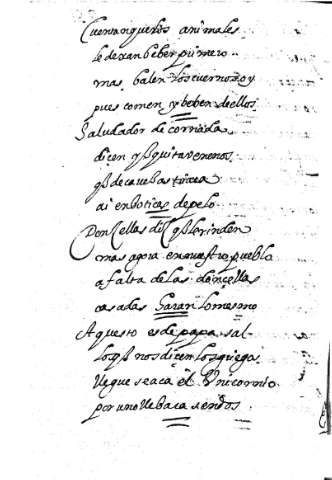 Cuentan que los animales
le dexan beber primero
mas balen los cuernos oy
pues comen y beben dellos
Saludador de cornada
diçen q̃ quita venenos
ai en boticas de pelo
Donçellas diç q̃ le rinden
mas agora en nuestro pueblo
a falta de las donçellas
casadas haran lo mesmo
Aquesto es de papasal
los q̃ nos diçen los griega
llegue seaca el Vnicornio
por uno lleba ca sendos